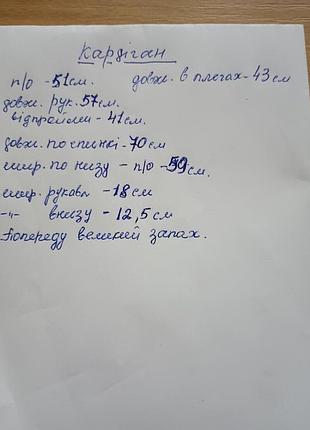 Кардіган
п/о - 51 см. довж. в плечах - 43 см
довж. рук. 57 см.
від пройми - 41 см.
довж. по спинкі - 70 см
шир. по низу - п/о - 59 см.
шир. рукава - 18 см
-"- внизу - 12,5 см
Попереду великий запах.